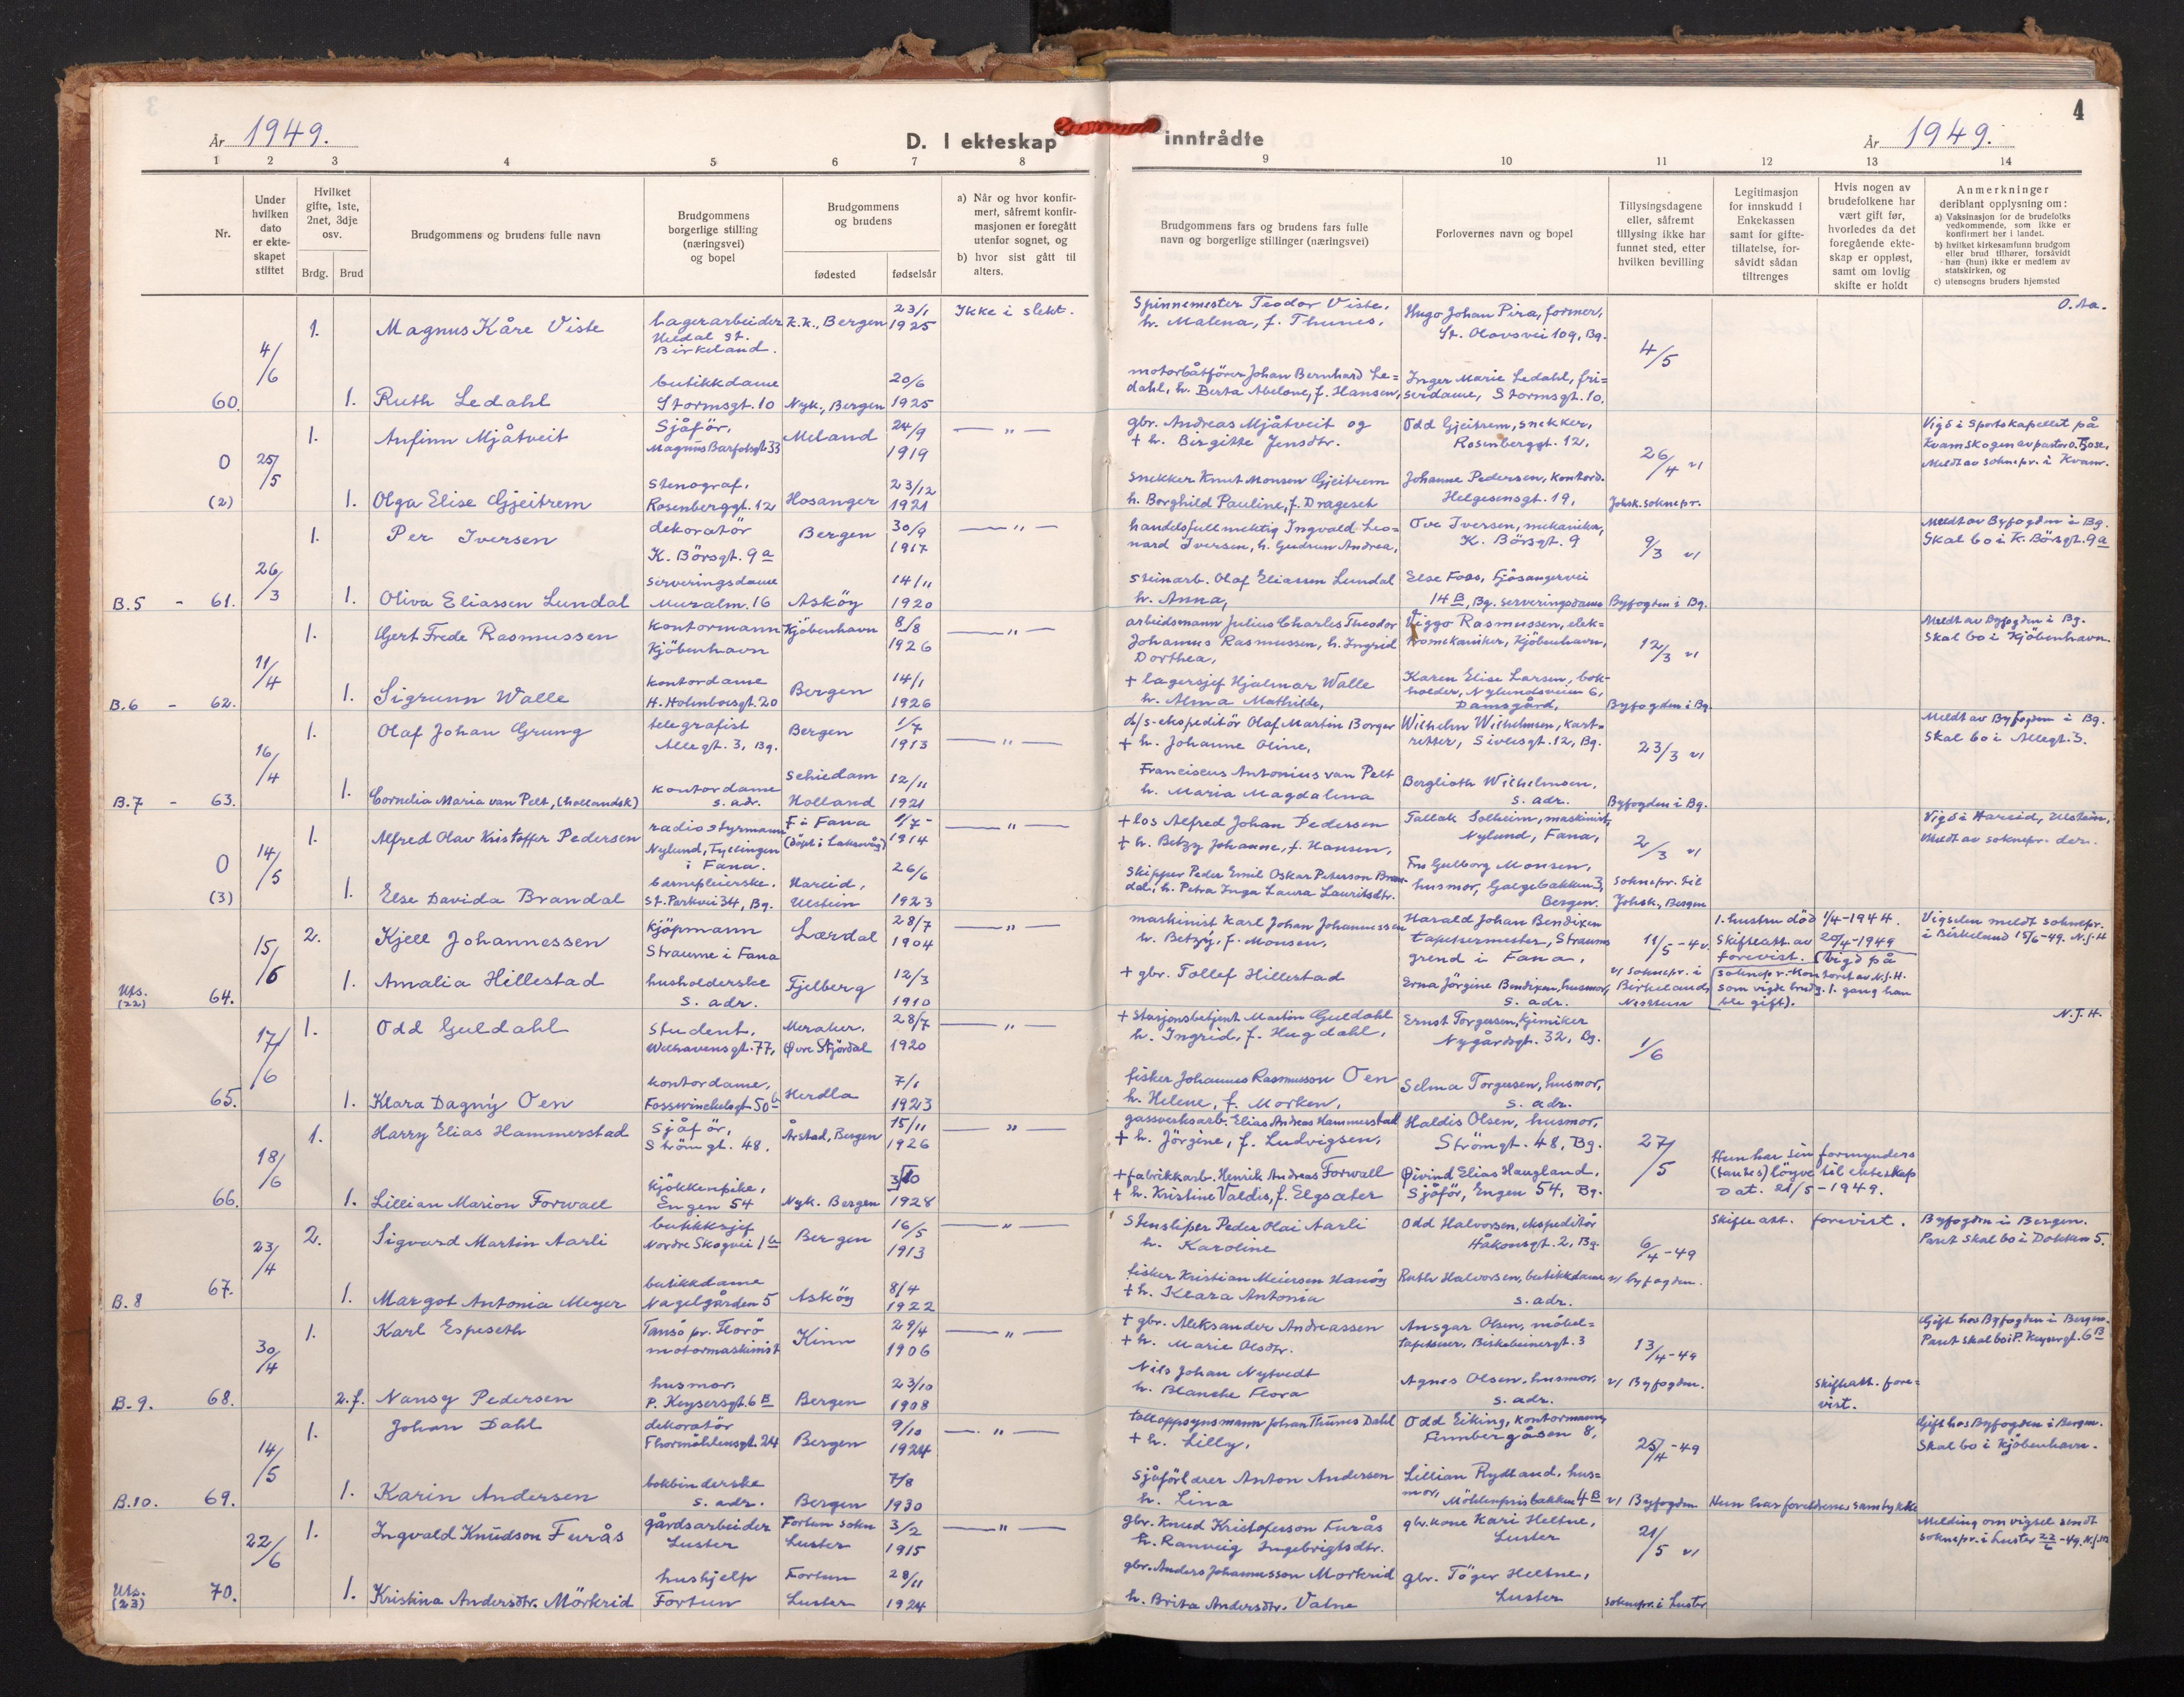 År 1949.
D. I ekteskap inntrådte
År 1949.
4
1 2 3 4 5 6 7 8 9 10 11 12 13 14
Nr.
Under hvilken dato er ekteskapet stiftet
Hvilket gifte, 1ste, 2net, 3dje osv.
Brdg. Brud
Brudgommens og brudens fulle navn
Brudgommens borgerlige stilling (næringsvei) og bopel
Brudgommens og brudens
fødested fødselsår
a) Når og hvor konfirmert, såfremt konfirmasjonen er foregått utenfor sognet, og
b) hvor sist gått til alters.
Brudgommens fars og brudens fars fulle navn og borgerlige stillinger (næringsvei)
Forlovernes navn og bopel
Tillysningsdagene eller, såfremt tillysing ikke har funnet sted, etter hvilken bevilling
Legitimasjon for innskudd i Enkekassen samt for giftetillatelse, forsåvidt sådan tiltrenges
Hvis nogen av brudefolkene har vært gift før, hvorledes da det foregående ekteskap er oppløst, samt om lovlig skifte er holdt
Anmerkninger deriblant opplysning om:
a) Vaksinasjon for de brudefolks vedkommende, som ikke er konfirmert her i landet.
b) hvilket kirkesamfunn brudgom eller brud tilhører, forsåvidt han (hun) ikke er medlem av statskirken, og
c) utensogns bruders hjemsted
4/6 1. Magnus Kåre Viste Lagerarbeider Heldal St. Birkeland. K.k., Bergen 23/1 1925 Ikke i slekt. Spinnemester Teodor Viste, h. Malena, f. Thunes. Hugo Johan Pira, former, St. Olavsvei 109, Bg. 4/5 O. Aa.
60. 1. Ruth Ledahl butikkdame Stormsgt. 10 Nyk., Bergen 20/6 1925 motorbåtfører Johan Bernhard Ledahl, h. Berta Abelone, f. Hansen, Inger Marie Ledahl, friserdame, Stormsgt. 10.
0 25/5 1. Anfinn Mjåtveit Sjåför, Magnus Barfotsgt 33 Meland 24/9 1919 — " — gbr. Andreas Mjåtveit og + h. Birgitte Jensdtr. Odd Gjeitrem, snekker, Rosenberggt. 12, 26/4 v/ Vigd i Sportskapellet på Kvamskogen av pastor O. Tjose, Meldt av soknepr. i Kvam.
(2) 1. Olga Elise Gjeitrem Stenograf, Rosenberggt. 12 Hosanger 23/12 1921 Snekker Knut Monsen Gjeitrem h. Borghild Pauline, f. Drageset Johanne Pedersen, kontord. Helgesensgt. 19, Johsk. soknepr.
26/3 1. Per Iversen dekoratör K. Börsgt. 9a Bergen 30/9 1917 — " — handelsfullmektig Ingvald Leonard Iversen, h. Gudrun Andrea, Ove Iversen, mekaniker, K. Börsgt. 9 9/3 v/ Meldt av Byfogden i Bg. Skal bo i K. Börsgt. 9a
B.5 - 61. 1. Oliva Eliassen Lundal serveringsdame Muralm. 16 Asköy 14/11 1920 Steinarb. Olaf Eliassen Lundal h. Anna, Else Foss, Fjösangervei 14B, Bg. serveringsdame Byfogden i Bg.
11/4 1. Gert Frede Rasmussen kontormann Kjöbenhavn Kjöbenhavn 8/8 1926 — " — arbeidsmann Julius Charles Theodor Johannes Rasmussen, h. Ingrid Dorthea, Viggo Rasmussen, elektromekaniker, Kjöbenhavn, 12/3 v/ Meldt av Byfogden i Bg. Skal bo i Kjöbenhavn.
B.6 - 62. 1. Sigrunn Walle kontordame H. Holmboesgt. 20 Bergen 14/1 1926 + lagersjef Hjalmar Walle h. Alma Mathilde, Karen Elise Larsen, bokholder, Nylundsveien 6, Damsgård, Byfogden i Bg.
16/4 1. Olaf Johan Grung telegrafist Allegt. 3, Bg. Bergen 1/7 1913 — " — d/s-ekspeditör Olaf Martin Borger + h. Johanne Oline, Wilhelm Wilhelmsen, kartretter, Sivlesgt. 12, Bg. 23/3 v/ Meldt av Byfogden i Bg. Skal bo i Allegt. 3.
B.7 - 63. 1. Cornelia Maria van Pelt, (hollandsk) kontordame s. adr. Schiedam Holland 12/11 1921 Franciscus Antonius van Pelt h. Maria Magdalena Bergljoth Wilhelmsen, s. adr. Byfogden i Bg.
0 14/5 1. Alfred Olav Kristoffer Pedersen radiostyrmann Nylund, Fyllingen i Fana. F. i Fana (döpt i Laksevåg) 1/7- 1914 — " — + los Alfred Johan Pedersen + h. Betzy Johanne, f. Hansen, Tallak Solheim, maskinist, Nylund, Fana, 2/3 v/ Vigd i Hareid, Ulstein, Meldt av soknepr. der.
(3) 1. Else Davida Brandal barnepleierske. St. Parkvei 34, Bg. Hareid, Ulstein 26/6 1923 Skipper Peder Emil Oskar Peterson Brandal, h. Petra Inga Laura Lauritsdtr. Fru Gulborg Monsen, husmor, Galgebakken 3, Bergen. soknepr. til Johsk., Bergen
15/6 2. Kjell Johannessen kjöpmann Straume i Fana Lærdal 28/7 1904 — " — maskinist Karl Johan Johannessen h. Betzy, f. Monsen, Harald Johan Bendixen tapetsermester, Straumsgrend i Fana, 11/5-49. 1. hustru död 1/4-1944. Skifteatt. av 20/4-1949 forevist. (Vigd på soknepr. kontoret av N.J.H. som vigde brudg. 1. gang han ble gift). Vigselen meldt soknepr. i Birkeland 15/6-49. N.J.H
Uts. (22) 64. 1. Amalia Hillestad husholderske s. adr. Fjelberg 12/3 1910 + gbr. Tollef Hillestad Erna Jörgine Bendixen, husmor, s. adr. v/ soknepr. i Birkeland, Nesttun
17/6 1. Odd Guldahl Student, Welhavensgt. 77, Meraker, Øvre Stjördal 28/7 1920 — " — + Stasjonsbetjent Martin Guldahl h. Ingrid, f. Hugdahl, Ernst Torgersen, kjemiker Nygårdsgt. 32, Bg. 1/6 N.J.H.
65. 1. Klara Dagný Oen kontordame, Fosswinckelsgt 50b Herdla 7/1 1923 fisker Johannes Rasmusson Oen h. Helene, f. Morken, Selma Torgersen, husmor, s. adr.
18/6 1. Harry Elias Hammerstad Sjåför, Strömgt. 48. Årstad, Bergen 15/11 1926 — " — gassverksarb. Elias Andreas Hammerstad + h. Jörgine, f. Ludvigsen, Haldis Olsen, husmor, Strömgt. 48, Bg. 27/5 Hun har sin formynders (tantes) löyve til ekteskap Dat. 21/5-1949.
66. 1. Lillian Marion Forwall kjökkenpike, Engen 54 Nyk. Bergen 1928 + fabrikkarb. Henrik Andreas Forwall + h. Kristine Valdis, f. Elgsæter Øivind Elias Haugland, Sjåför, Engen 54, Bg.
23/4 2. Sigvard Martin Aarli butikksjef Nordre Skogvei 1b Bergen 16/5 1913 — " — Stensliper Peder Olai Aarli h. Karoline Odd Halvorsen, ekspeditör Håkonsgt. 2, Bg. 6/4-49 Skifte att. forevist. Byfogden i Bergen. Paret skal bo i Dokken 5.
B.8 67. 1. Margot Antonia Meyer butikkdame Nagelgården 5 Asköy 8/4 1922 fisker Kristian Meiersen Hanöy + h. Klara Antonia Ruth Halvorsen, butikkdame s. adr. v/ byfogden.
30/4 1. Karl Espeseth Tansö pr. Florö motormaskinist Kinn 29/4 1906 — " — + gbr. Aleksander Andreassen + h. Marie Olsdtr. Ansgar Olsen, möbeltapetserer, Birkebeinergt. 3 13/4-49 Gift hos Byfogden i Bergen. Paret skal bo i P. Keysergt. 6B
B.9. 68. 2.f. Nansy Pedersen husmor. P. Keysersgt. 6B Bergen 23/10 1908 Nils Johan Nytvedt h. Blanche Flora Agnes Olsen, husmor, s. adr. v/ Byfogden. Skifteatt. forevist.
14/5 1. Johan Dahl dekoratör Thormöhlensgt. 24 Bergen 9/10 1924 — " — tolloppsynsmann Johan Thunes Dahl + h. Lilly, Odd Eiking, kontormann, Finnbergåsen 8, 25/4-49 Gift hos Byfogden i Bergen. Skal bo i Kjöbenhavn.
B.10. 69. 1. Karin Andersen bokbinderske s. adr. Bergen 7/8 1930 Sjåförlærer Anton Andersen h. Lina Lillian Rydland, husmor, Möhlenprisbakken 4B v/ Byfogden Hun har foreldrenes samtykke
22/6 1. Ingvald Knudson Furås gårdsarbeider Luster Fortun sokn Luster 3/2 1915 — " — gbr. Knud Kristoferson Furås h. Ranveig Ingebrigtsdtr. gbr. kone Kari Heltne, Luster 21/5 v/ Melding om vigsel sendt soknepr. i Luster 22/6-49. N.J.H.
Uts. (23) 70. 1. Kristina Andersdtr. Mörkrid hushjelp Fortun Fortun Luster 28/11 1924 gbr. Anders Johannusson Morkrid h. Brita Andersdtr. Valne gbr. Töger Heltne, Luster soknepr. i Luster